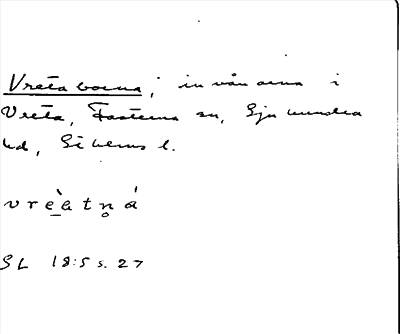 Vretaboena, invånarna i
Vreta, Fasterna sn, Sjuhundra
hd, St benus l.
vrèatn̥á
SL 18:5 s. 27